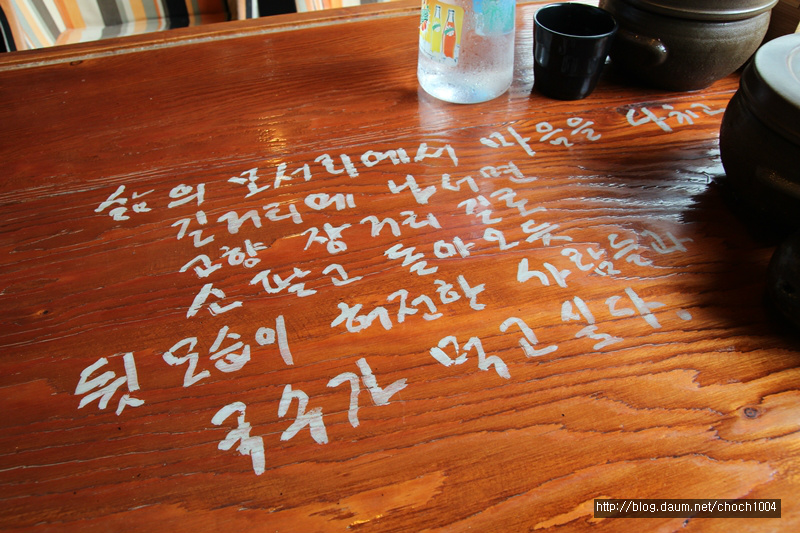 삶의 모서리에서 마음을 다치고
길거리에 나서면
고향 장거리 길로
소 팔고 돌아오듯
뒷모습이 허전한 사람들과
국수가 먹고 싶다.
http://blog.daum.net/choch1004